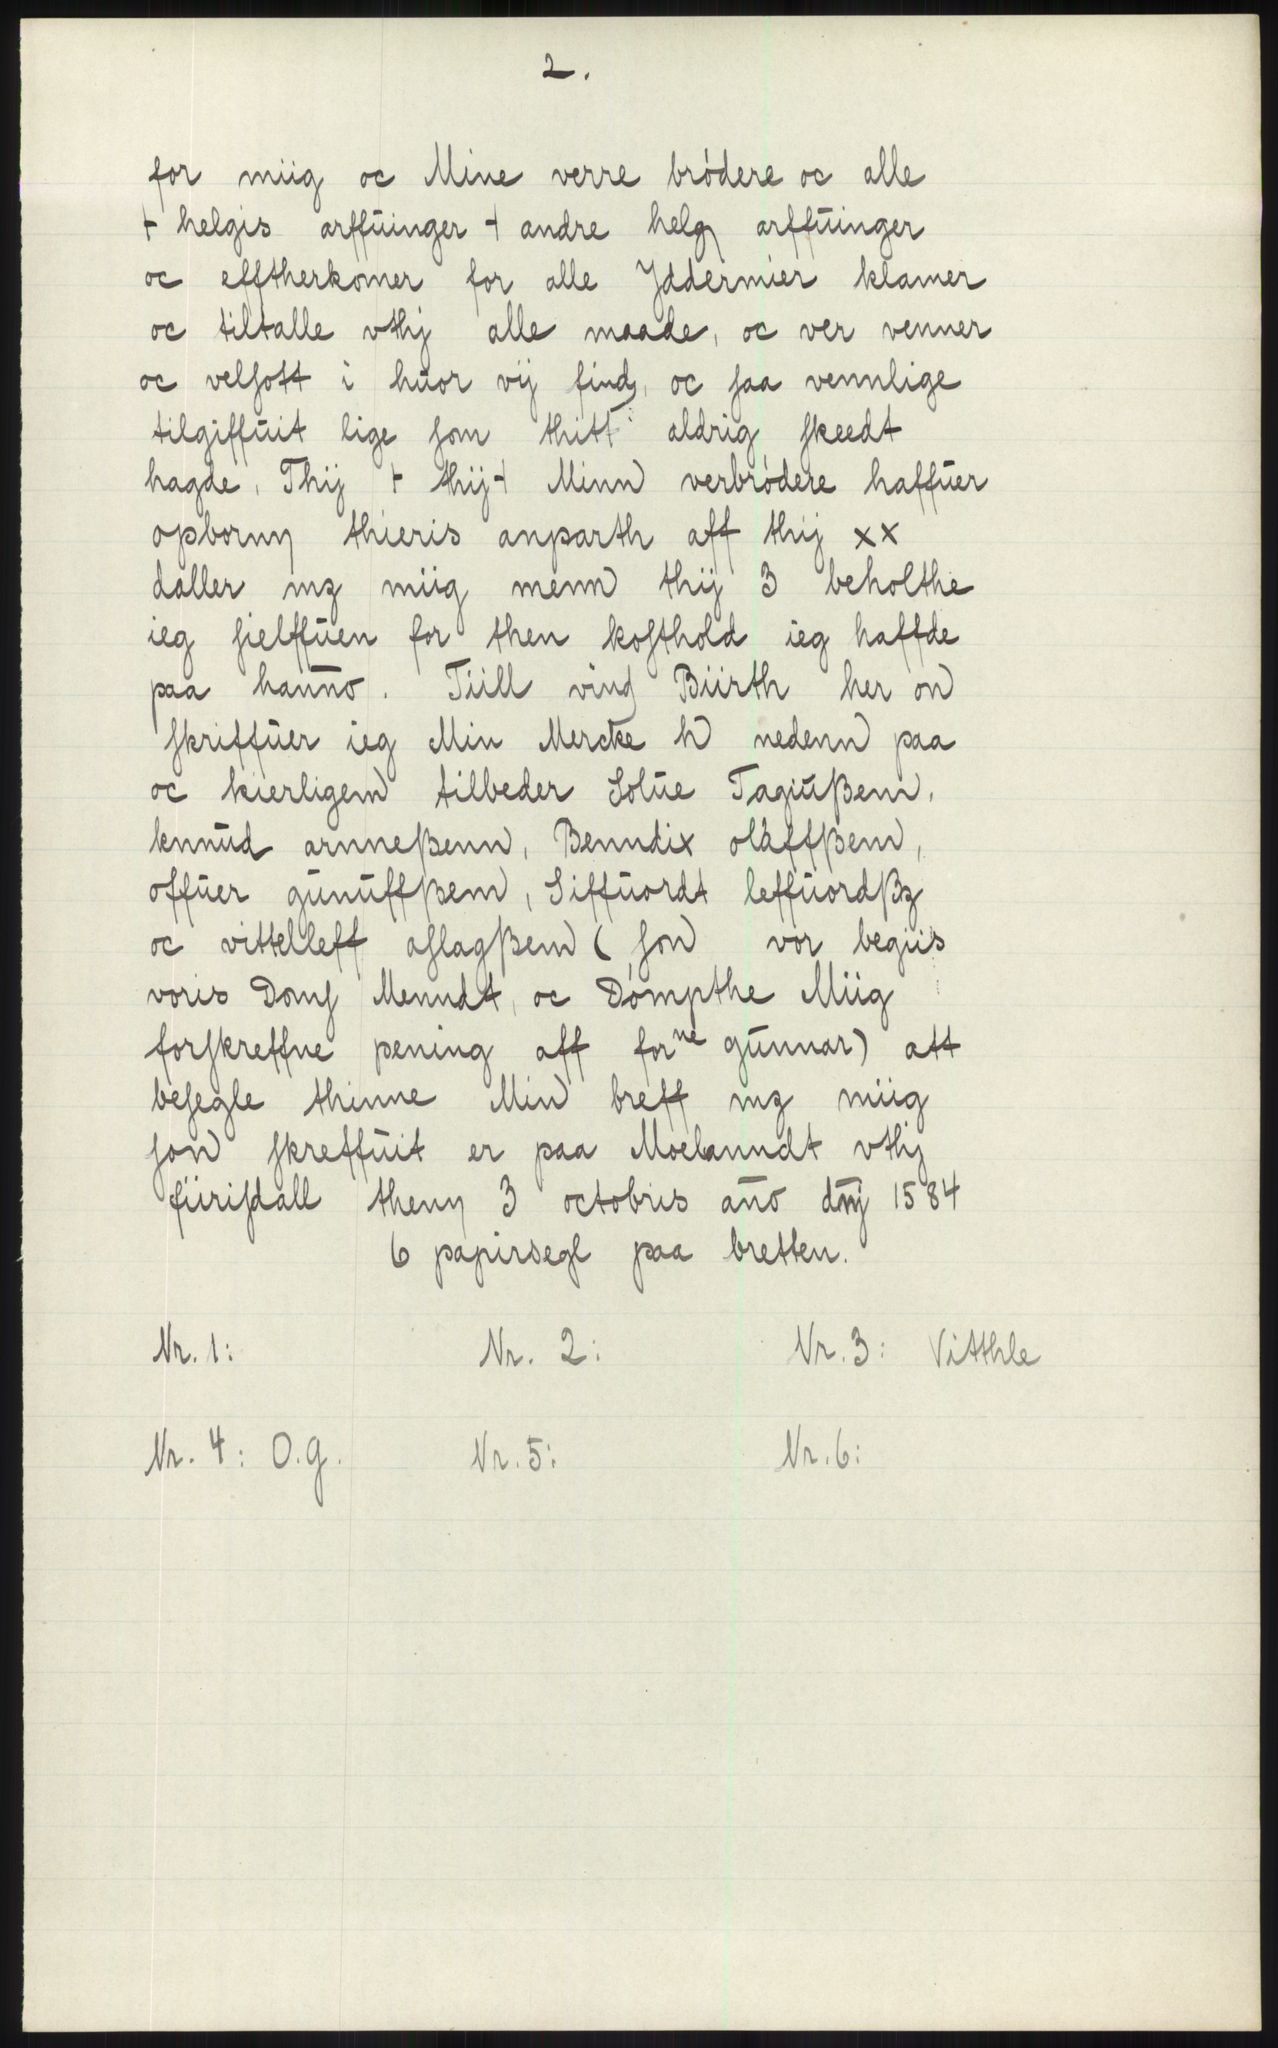 2.
for miig oc Mine verre brødere oc alle
+ helgis arffuinger + andre helg arffuinger
oc efftherkomer for alle Yddermier klamer
oc tiltalle vthj alle maade, oc ver venner
oc velsott i huor vij find, oc saa vennlige
tilgiffuit lige som thitt aldrig skeedt
hagde, Thij + thij + Minn verbrødere haffuer
opborny thieris anparth aff thij xx
daller mz miig menn thij 3 beholthe
ieg sielffuen for then kosthold ieg haffde
paa hanno. Tiill vind Biirth her on
skriffuer ieg Min Mercke h nedenn paa
oc kierligem tilbeder Solue Tagiußenn,
knnud arnneßenn, Benndix olaffßenn,
offuer gunuffßenn, Siffuordt leffuordßz
oc vittelleff aslagßenn (son vor begiis
voris Dons Menndt, oc Dømpthe Miig
forskreffne pening aff forne gunnar) att
besegle thinne Min breff mz miig
son skreffuit er paa Moelanndt vthj
fiirisdall theny 3 octobris ano dnj 1584
6 papirsegl paa bretten.
Nr. 1: Nr. 2: Nr. 3: Vitthle
Nr. 4: O.G. Nr. 5: Nr. 6: